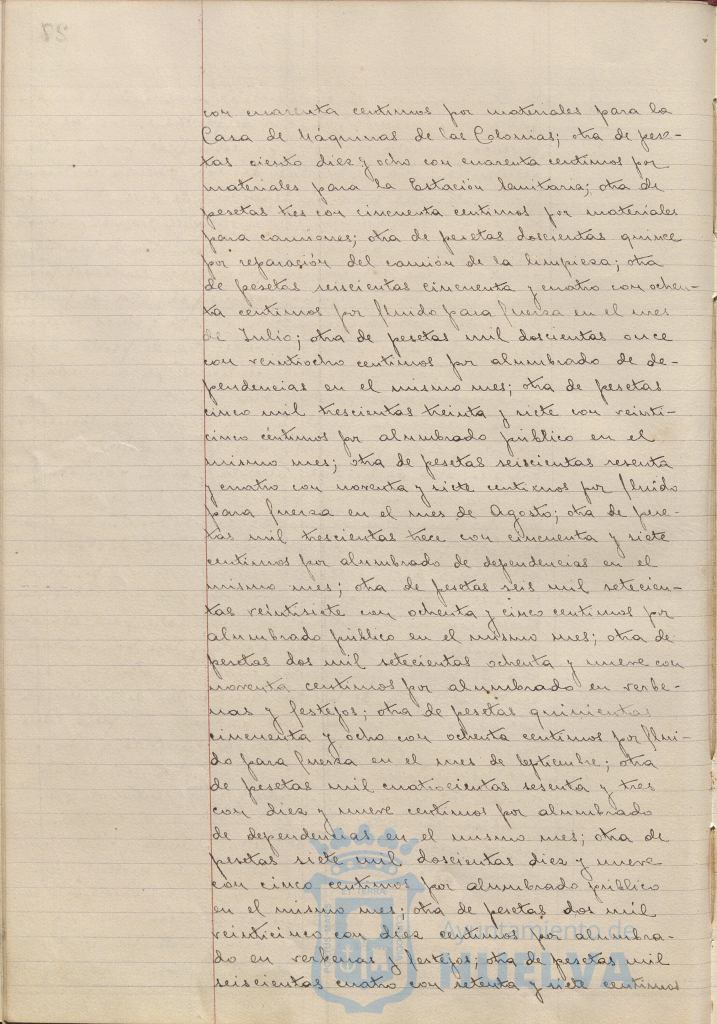 con cuarenta centimos por materiales para la
Casa de Máquinas de las Colonias; otra de pese-
tas ciento diez y ocho con cuarenta centimos por
materiales para la Estación Sanitaria; otra de
pesetas tres con cincuenta centimos por materiales
para camiones; otra de pesetas doscientas quince
por reparación del camión de la limpieza; otra
de pesetas seiscientas cincuenta y cuatro con ochen-
ta centimos por fluido para fuerza en el mes
de Julio; otra de pesetas mil doscientas once
con veintiocho centimos por alumbrado de de-
pendencias en el mismo mes; otra de pesetas
cinco mil trescientas treinta y siete con veinti-
cinco céntimos por alumbrado público en el
mismo mes; otra de pesetas seiscientas sesenta
y cuatro con noventa y siete centimos por fluido
para fuerza en el mes de Agosto; otra de pese-
tas mil trescientas trece con cincuenta y siete
centimos por alumbrado de dependencias en el
mismo mes; otra de pesetas seis mil setecien-
tas veintisiete con ochenta y cinco centimos por
alumbrado público en el mismo mes; otra de
pesetas dos mil setecientas ochenta y nueve con
noventa centimos por alumbrado en verbe-
nas y festejos; otra de pesetas quinientas
cincuenta y ocho con ochenta centimos por flui-
do para fuerza en el mes de Septiembre; otra
de pesetas mil cuatrocientas sesenta y tres
con diez y nueve centimos por alumbrado
de dependencias en el mismo mes; otra de
pesetas siete mil doscientas diez y nueve
con cinco centimos por alumbrado público
en el mismo mes; otra de pesetas dos mil
veinticinco con diez centimos por alumbra-
do en verbenas y festejos; otra de pesetas mil
seiscientas cuatro con setenta y siete centimos
Ayuntamiento de
HUELVA